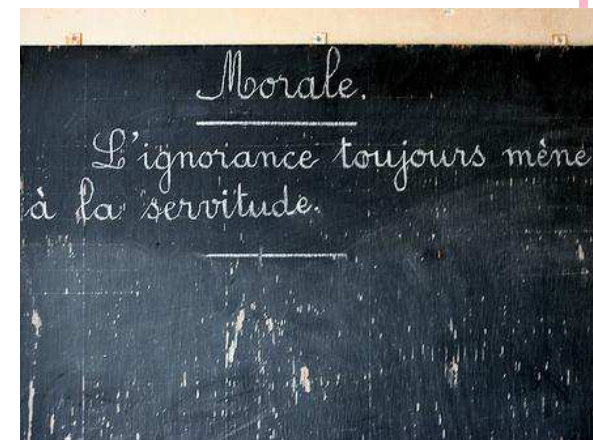 Morale.
L'ignorance toujours mène
à la servitude.